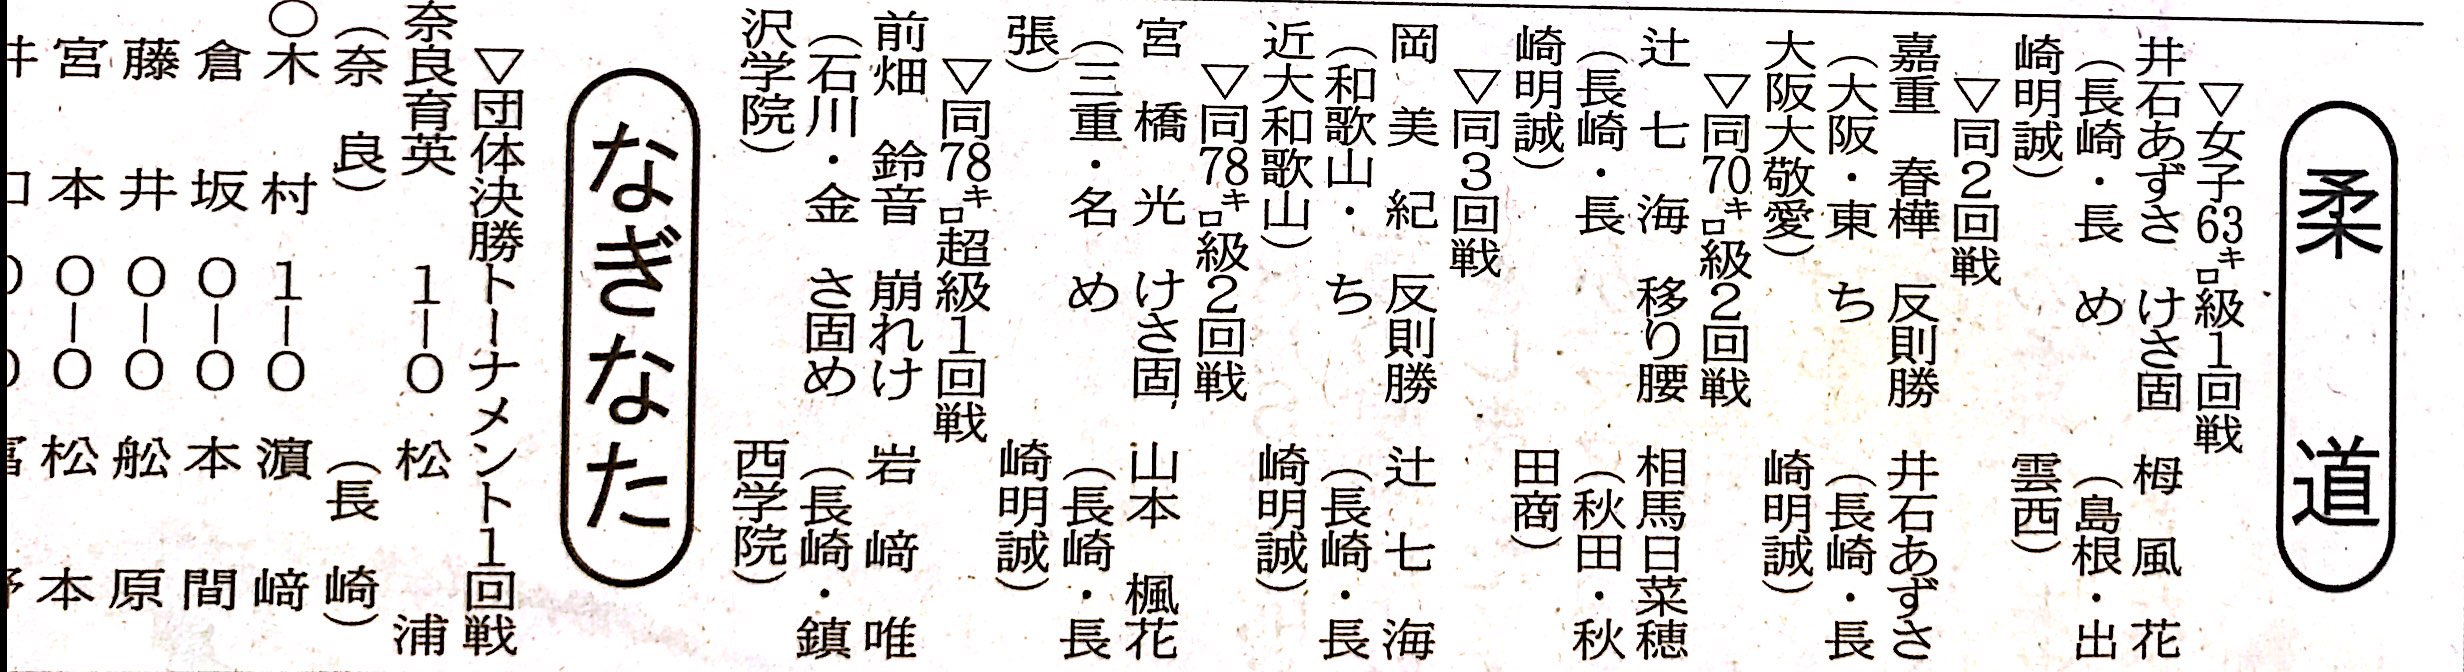 柔道
▽女子63㌔級1回戦
井石あずさ けさ固 栂風花
（長崎・長 め （島根・出
崎明誠） 雲西）
▽同2回戦
嘉重春樺 反則勝 井石あずさ
（大阪・東 ち （長崎・長
大阪大敬愛） 崎明誠）
▽同70㌔級2回戦
辻七海 移り腰 相馬日菜穂
（長崎・長 （秋田・秋
崎明誠） 田商）
▽同3回戦
岡美紀 反則勝 辻七海
（和歌山・ ち （長崎・長
近大和歌山） 崎明誠）
▽同78㌔級2回戦
宮橋光 けさ固 山本楓花
（三重・名 め （長崎・長
張） 崎明誠）
▽同78㌔超級1回戦
前畑鈴音 崩れけ 岩﨑唯
（石川・金 さ固め （長崎・鎮
沢学院） 西学院）
なぎなた
▽団体決勝トーナメント1回戦
奈良育英 1－0 松浦
（奈良） （長崎）
○木村 1－0 濵﨑
倉坂 0－0 本間
藤井 0－0 舩原
宮本 0－0 松本